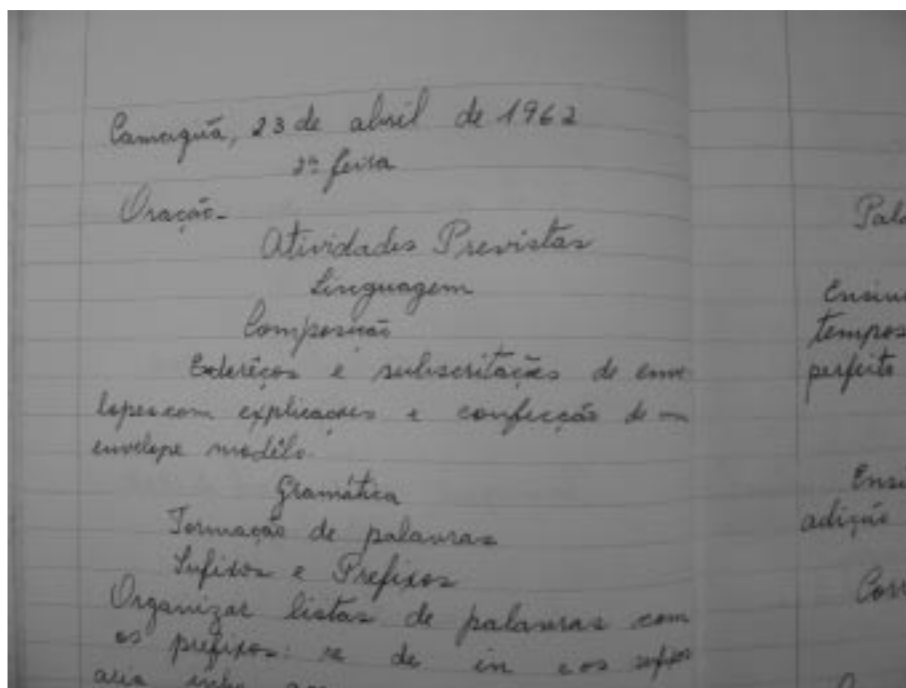 Camaquã, 23 de abril de 1962
2ª feira
Oração-
Atividades Previstas
Linguagem
Composição
Enderêços e subscritações de enve
lopes com explicações e confecção de um
envelope modêlo
Gramática
Formação de palavras
Sufixos e Prefixos
Organizar listas de palavras com
os prefixos: re de in e os sufixos
aria inho
Ensin
tempos
perfeito
Ensi
adição